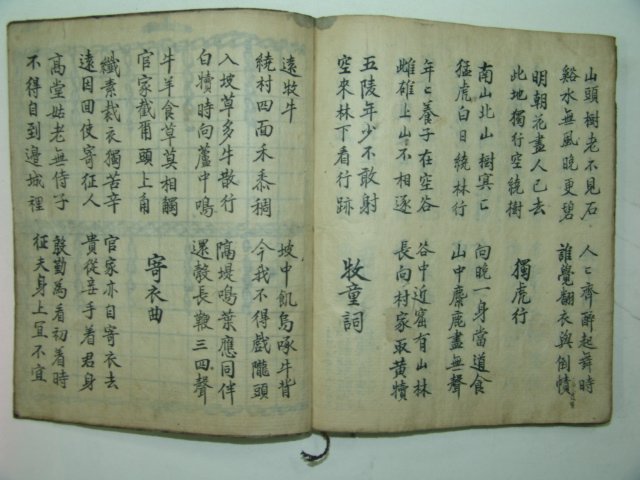 山頭樹老不見石
谿水無風晚更碧
人〻齊醉起舞時
誰覺翻衣與倒幘
明朝花盡人已去
此地獨行空繞樹
獨虎行
南山北山樹冥〻
猛虎白日繞林行
向晚一身當道食
山中麋鹿盡無聲
年〻養子在空谷
雌雄上山不相逐
谷中近窟有山林
長向村家取黃犢
五陵年少不敢射
空來林下看行跡
牧童詞
遠牧牛
繞村四面禾黍稠
坡中飢烏啄牛背
今我不得戲隴頭
入坡草多牛散行
白犢時向蘆中鳴
隔堤鳴葉應同伴
還鼓長鞭三四聲
牛羊食草莫相觸
官家截爾頭上角
寄衣曲
纖素裁衣獨苦辛
遠因回使寄征人
官家亦自寄衣去
貴從妾手着君身
高堂姑老無侍子
不得自到邊城裡
慇勤為看初着時
征夫身上宜不宜